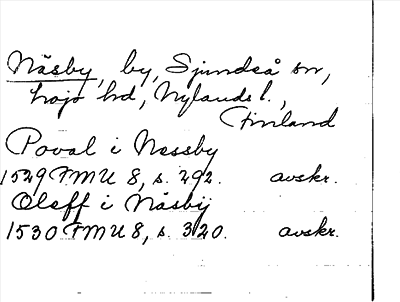 Näsby, by, Sjundeå sn,
Lojo hd, Nylands l.,
Finland
Poval i Nessby
1529 FMU 8, s. 292. avskr.
Oleff i Näsby
1530 FMU 8, s. 320. avskr.